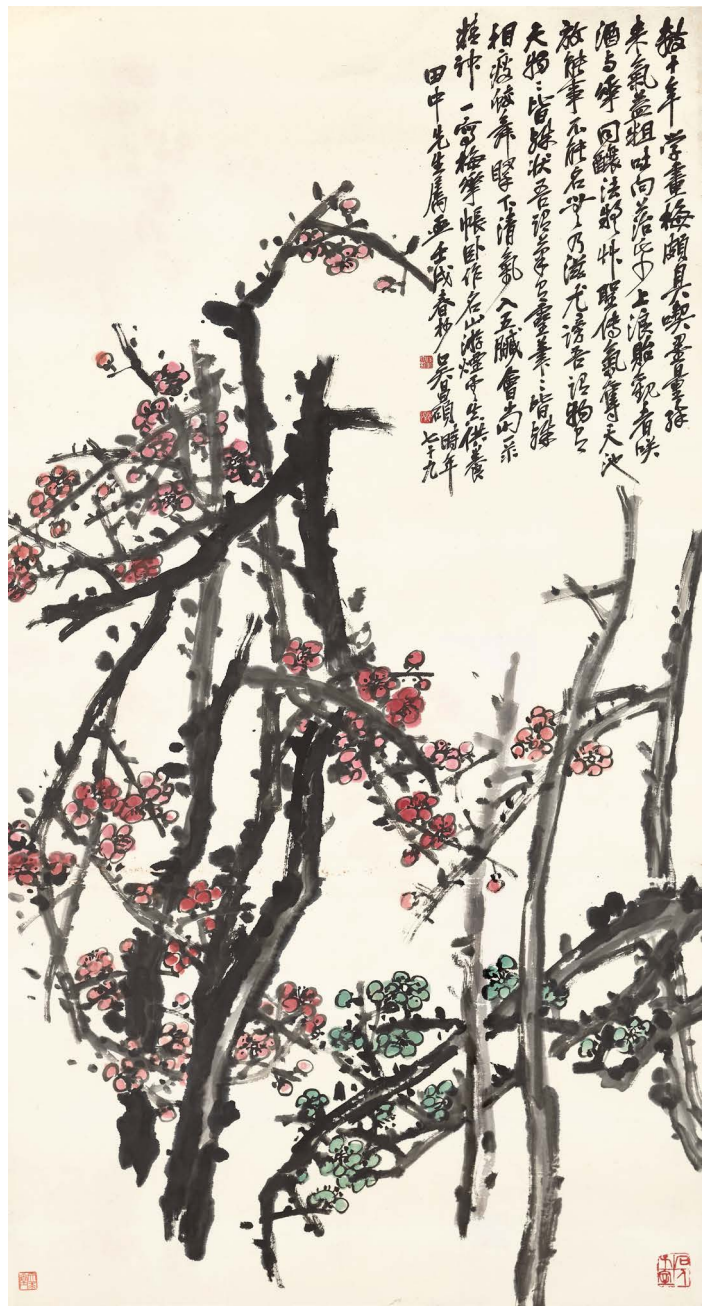 數十年學畫梅頗具喫墨量醉
來氣益粗吐向苔紙上浪貽觀者咲
酒与華同釀法疑艸聖傳氣奪天池
放能事不能名無乃滋尤謗吾謂物有
天物〻皆殊狀吾謂筆有靈筆〻皆殊
相瘦蛟舞腕下清氣入五臟會當聚
精神一寫梅華帳臥作名山游煙雲生供養
田中先生屬畫壬戌春杪吳昌碩時年
七十九
石人子室